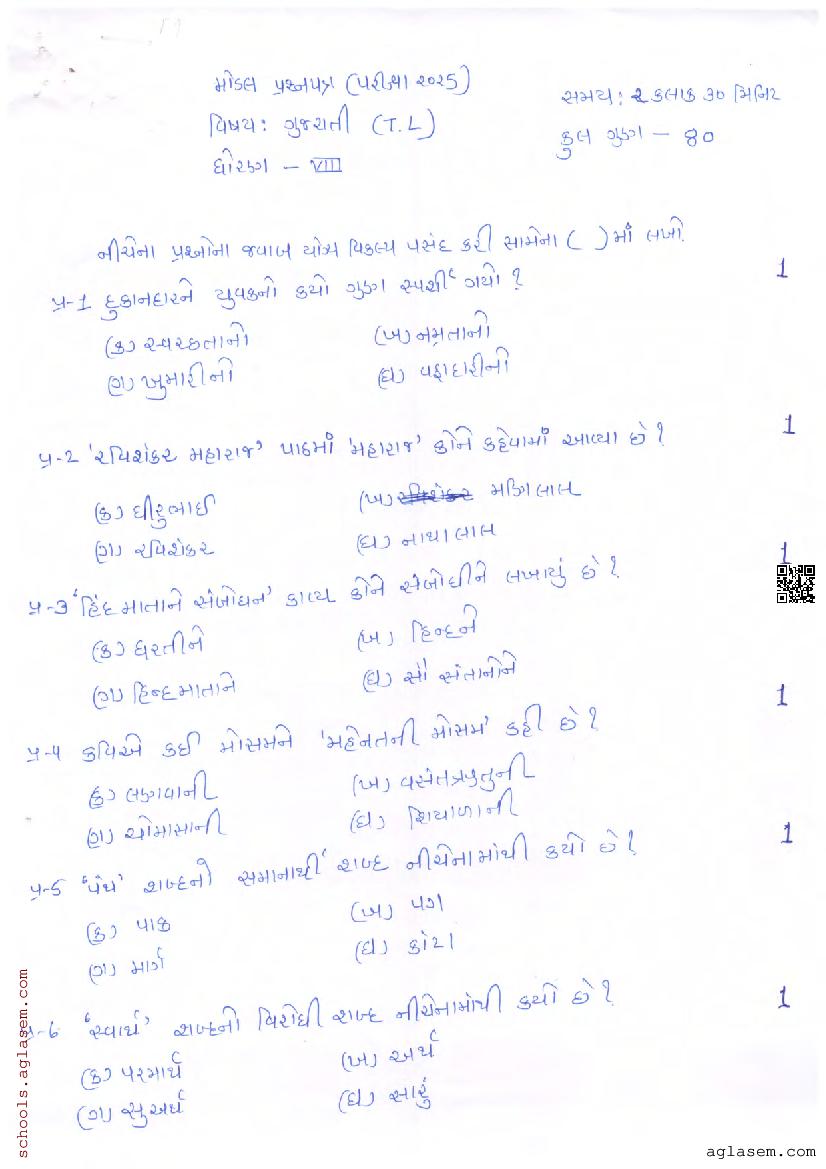 મોડલ પ્રશ્નપત્ર (પરીક્ષા ૨૦૨૫)
સમય: ૨ કલાક ૩૦ મિનિટ
વિષય: ગુજરાતી (T.L)
કુલ ગુણ - ૪૦
ધોરણ - VIII
નીચેના પ્રશ્નોના જવાબ યોગ્ય વિકલ્પ પસંદ કરી સામેના ( ) માં લખો.
પ્ર-1 દુકાનદારને યુવકનો કયો ગુણ સ્પર્શી ગયો ? 1
(ક) સ્વચ્છતાનો (ખ) નમ્રતાનો
(ગ) ખુમારીનો (ઘ) વફાદારીનો
પ્ર-૨ 'રવિશંકર મહારાજ' પાઠમાં 'મહારાજ' કોને કહેવામાં આવ્યા છે ? 1
(ક) ધીરુભાઈ (ખ) મણિલાલ
(ગ) રવિશંકર (ઘ) નાથાલાલ
પ્ર-૩ 'હિંદમાતાને સંબોધન' કાવ્ય કોને સંબોધીને લખાયું છે ? 1
(ક) ધરતીને (ખ) હિન્દને
(ગ) હિન્દમાતાને (ઘ) સૌ સંતાનોને
પ્ર-૪ કવિએ કઈ મોસમને 'મહેનતની મોસમ' કહી છે ? 1
(ક) લણવાની (ખ) વસંતઋતુની
(ગ) ચોમાસાની (ઘ) શિયાળાની
પ્ર-5 'પંથ' શબ્દનો સમાનાર્થી શબ્દ નીચેનામાંથી કયો છે ? 1
(ક) પાક (ખ) પગ
(ગ) માર્ગ (ઘ) કાંટા
પ્ર-૬ 'સ્વાર્થ' શબ્દનો વિરોધી શબ્દ નીચેનામાંથી કયો છે ? 1
(ક) પરમાર્થ (ખ) અર્થ
(ગ) સુઅર્થ (ઘ) સારું
schools.aglasem.com
aglasem.com